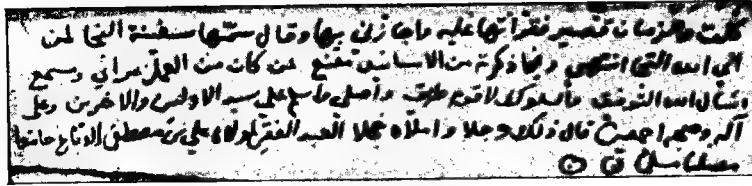 كلت والزمان قصير فقرأتها عليه وأجازني بها وقال سمتها سفينة النجا لمن
الى الله التجا انتهى وفيما ذكرته من الاسانيد مقنع لمن كان من العمل بمرأى ومسمع
اسأل الله التوفيق والسلوك لاقوم طريق وأصلي وأسلم على سيد الاولين والاخرين وعلى
آله وصحبه اجمعين قال ذلك وجلا واملاه خجلا العبد الفقير علي بن مصطفى الدباغ حامدا
مصليا مسلما